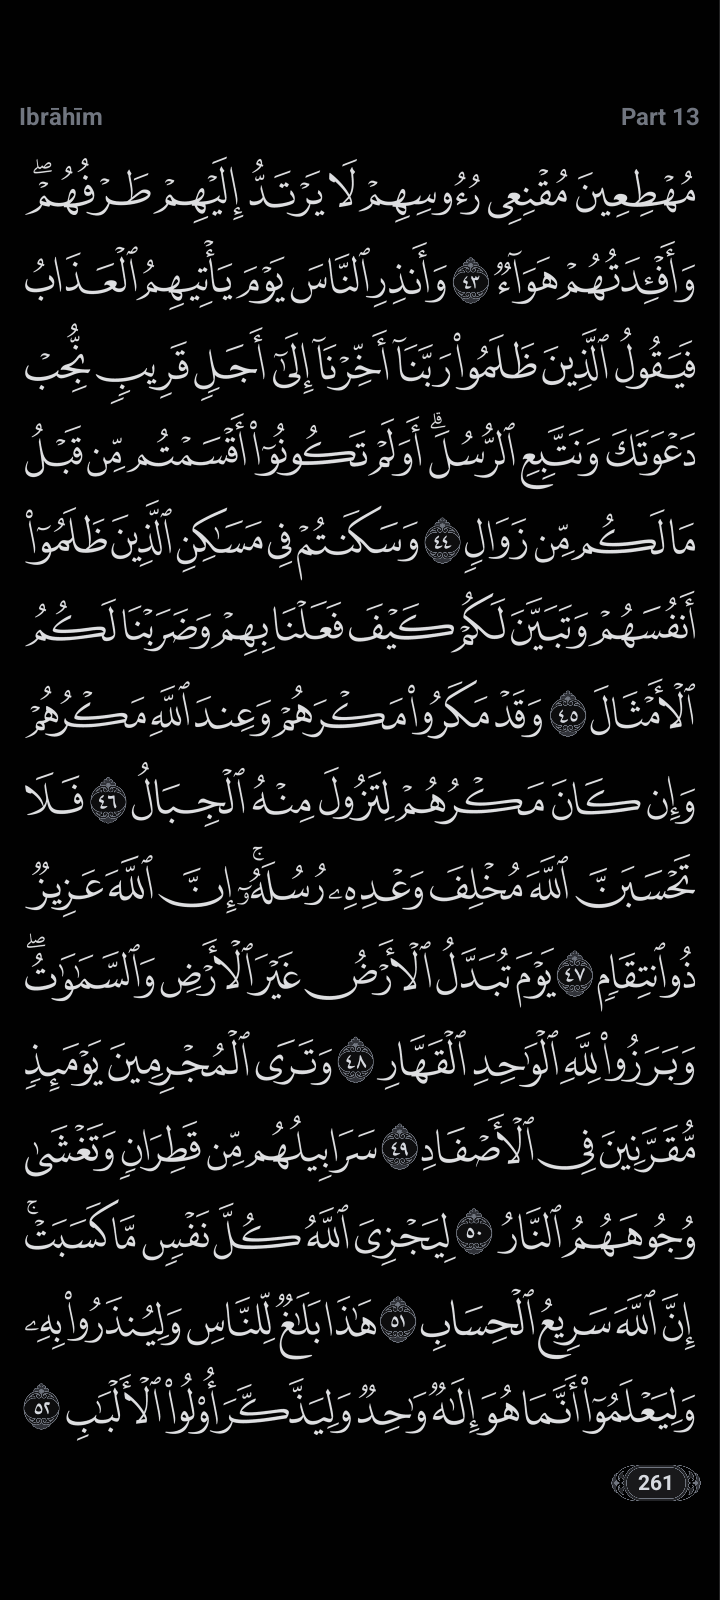 Ibrāhīm
Part 13
مُهْطِعِينَ مُقْنِعِى رُءُوسِهِمْ لَا يَرْتَدُّ إِلَيْهِمْ طَرْفُهُمْ ۖ
وَأَفْـِٔدَتُهُمْ هَوَآءٌ ٤٣ وَأَنذِرِ ٱلنَّاسَ يَوْمَ يَأْتِيهِمُ ٱلْعَذَابُ
فَيَقُولُ ٱلَّذِينَ ظَلَمُوا۟ رَبَّنَآ أَخِّرْنَآ إِلَىٰٓ أَجَلٍ قَرِيبٍ نُّجِبْ
دَعْوَتَكَ وَنَتَّبِعِ ٱلرُّسُلَ ۗ أَوَلَمْ تَكُونُوٓا۟ أَقْسَمْتُم مِّن قَبْلُ
مَا لَكُم مِّن زَوَالٍ ٤٤ وَسَكَنتُمْ فِى مَسَـٰكِنِ ٱلَّذِينَ ظَلَمُوٓا۟
أَنفُسَهُمْ وَتَبَيَّنَ لَكُمْ كَيْفَ فَعَلْنَا بِهِمْ وَضَرَبْنَا لَكُمُ
ٱلْأَمْثَالَ ٤٥ وَقَدْ مَكَرُوا۟ مَكْرَهُمْ وَعِندَ ٱللَّهِ مَكْرُهُمْ
وَإِن كَانَ مَكْرُهُمْ لِتَزُولَ مِنْهُ ٱلْجِبَالُ ٤٦ فَلَا
تَحْسَبَنَّ ٱللَّهَ مُخْلِفَ وَعْدِهِۦ رُسُلَهُۥٓ ۚ إِنَّ ٱللَّهَ عَزِيزٌ
ذُو ٱنتِقَامٍ ٤٧ يَوْمَ تُبَدَّلُ ٱلْأَرْضُ غَيْرَ ٱلْأَرْضِ وَٱلسَّمَـٰوَٰتُ ۖ
وَبَرَزُوا۟ لِلَّهِ ٱلْوَٰحِدِ ٱلْقَهَّارِ ٤٨ وَتَرَى ٱلْمُجْرِمِينَ يَوْمَئِذٍ
مُّقَرَّنِينَ فِى ٱلْأَصْفَادِ ٤٩ سَرَابِيلُهُم مِّن قَطِرَانٍ وَتَغْشَىٰ
وُجُوهَهُمُ ٱلنَّارُ ٥٠ لِيَجْزِىَ ٱللَّهُ كُلَّ نَفْسٍ مَّا كَسَبَتْ ۚ
إِنَّ ٱللَّهَ سَرِيعُ ٱلْحِسَابِ ٥١ هَـٰذَا بَلَـٰغٌ لِّلنَّاسِ وَلِيُنذَرُوا۟ بِهِۦ
وَلِيَعْلَمُوٓا۟ أَنَّمَا هُوَ إِلَـٰهٌ وَٰحِدٌ وَلِيَذَّكَّرَ أُو۟لُوا۟ ٱلْأَلْبَـٰبِ ٥٢
261